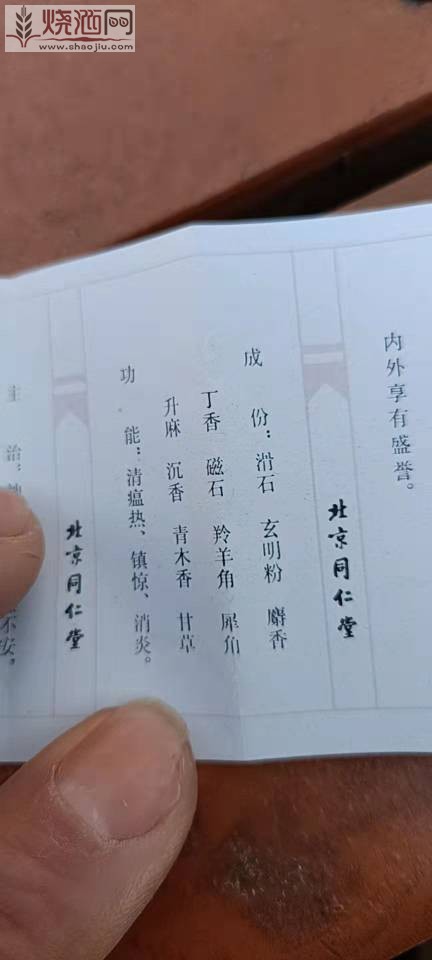 烧酒网
www.shaojiu.com
内外享有盛誉。
北京同仁堂
成份：滑石 玄明粉 麝香
丁香 磁石 羚羊角 犀角
升麻 沉香 青木香 甘草
功能：清瘟热、镇惊、消炎。
北京同仁堂
主治：
不安，